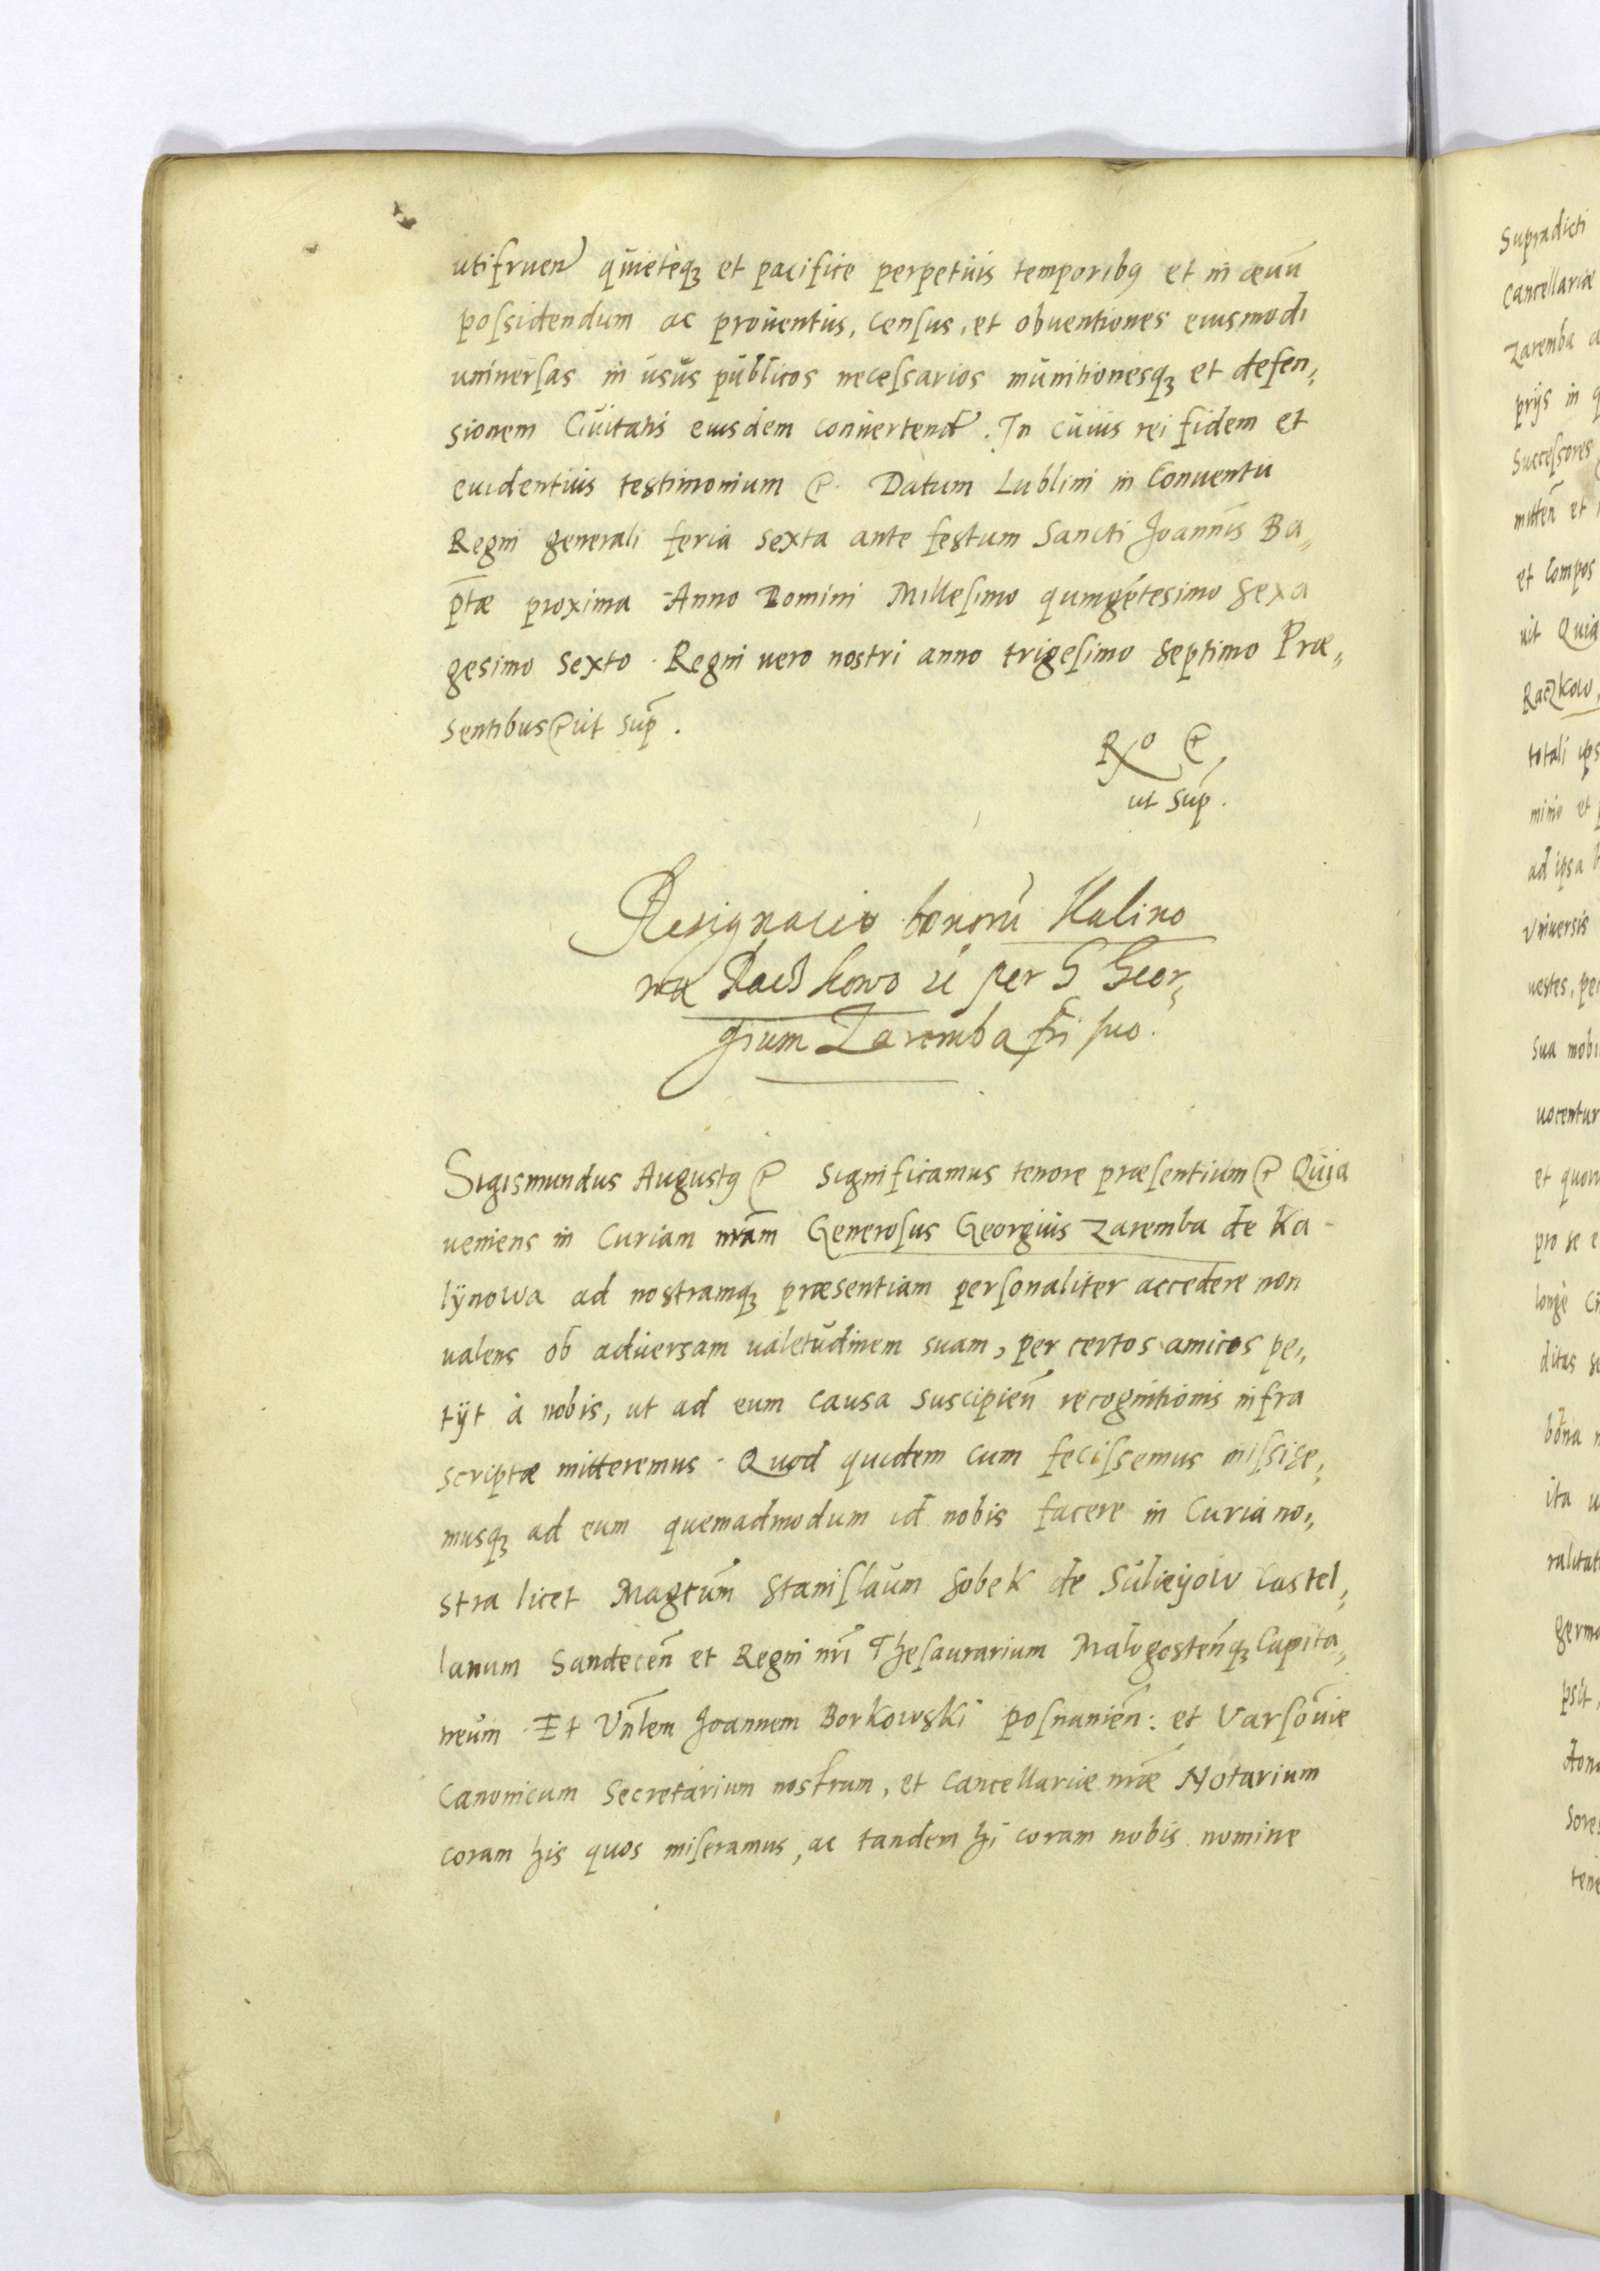 utifruen̄ quietèq3 et pacifice perpetuis temporibꝰ et in æuū
possidendum ac prouentus, census, et obuentiones eiusmodi
uniuersas in usus publicos necessarios munitionesq3 et defen,,
sionem Ciuitatis eiusdem conuertend. In cuius rei fidem et
euidentius testimonium &. Datum Lublini in Conuentu
Regni generali feria sexta ante festum Sancti Joannis Ba,,
p̄tæ proxima Anno Domini Millesimo quingētesimo Sexa
gesimo Sexto. Regni uero nostri anno trigesimo Septimo Præ,,
sentibus & ut sup̄.
Rō &
ut sup̄.
Resignacio bonorū Kalino
wa Raczkowo zc per G Geor,,
gium Zaremba fr̄i suo.
Sigismundus Augustꝰ & Significamus tenore præsentium & Quia
ueniens in Curiam nr̄am Generosus Georgius Zaremba de Ka-
lÿnowa ad nostramq3 præsentiam personaliter accedere non
ualens ob aduersam ualetudinem suam, per certos amicos pe,,
tÿt à nobis, ut ad eum causa suscipien̄ recognitionis infra
scriptæ mitteremus. Quod quidem cum fecissemus misisse,,
musq3 ad eum quemadmodum id nobis facere in Curia no,,
stra licet Magcum̄ Stanislaum Sobek de Sulieÿow Castel,,
lanum Sandecen̄ et Regni nr̄i Thesaurarium Malogosten̄q3 Capita,,
neum. Et Vn̄lem Joannem Borkowski posnanien̄: et Varsouie
Canonicum Secretarium nostrum, et Cancellariæ nr̄æ Notarium
coram his quos miseramus, ac tandem hi coram nobis nomine
Supradicti
Cancellariæ
Zaremba a
prijs in q
Successores
mitten̄ et
et Compos
uit Quia
Raczkow,
totali ips
minio et p
ad ipsa
Vniuersis
uestes, pe
sua mobi
uocentur
et quou
pro se e
longè ci
ditas se
bōna n
ita u
ralitat
germa
psit,
dona
Sores
tene